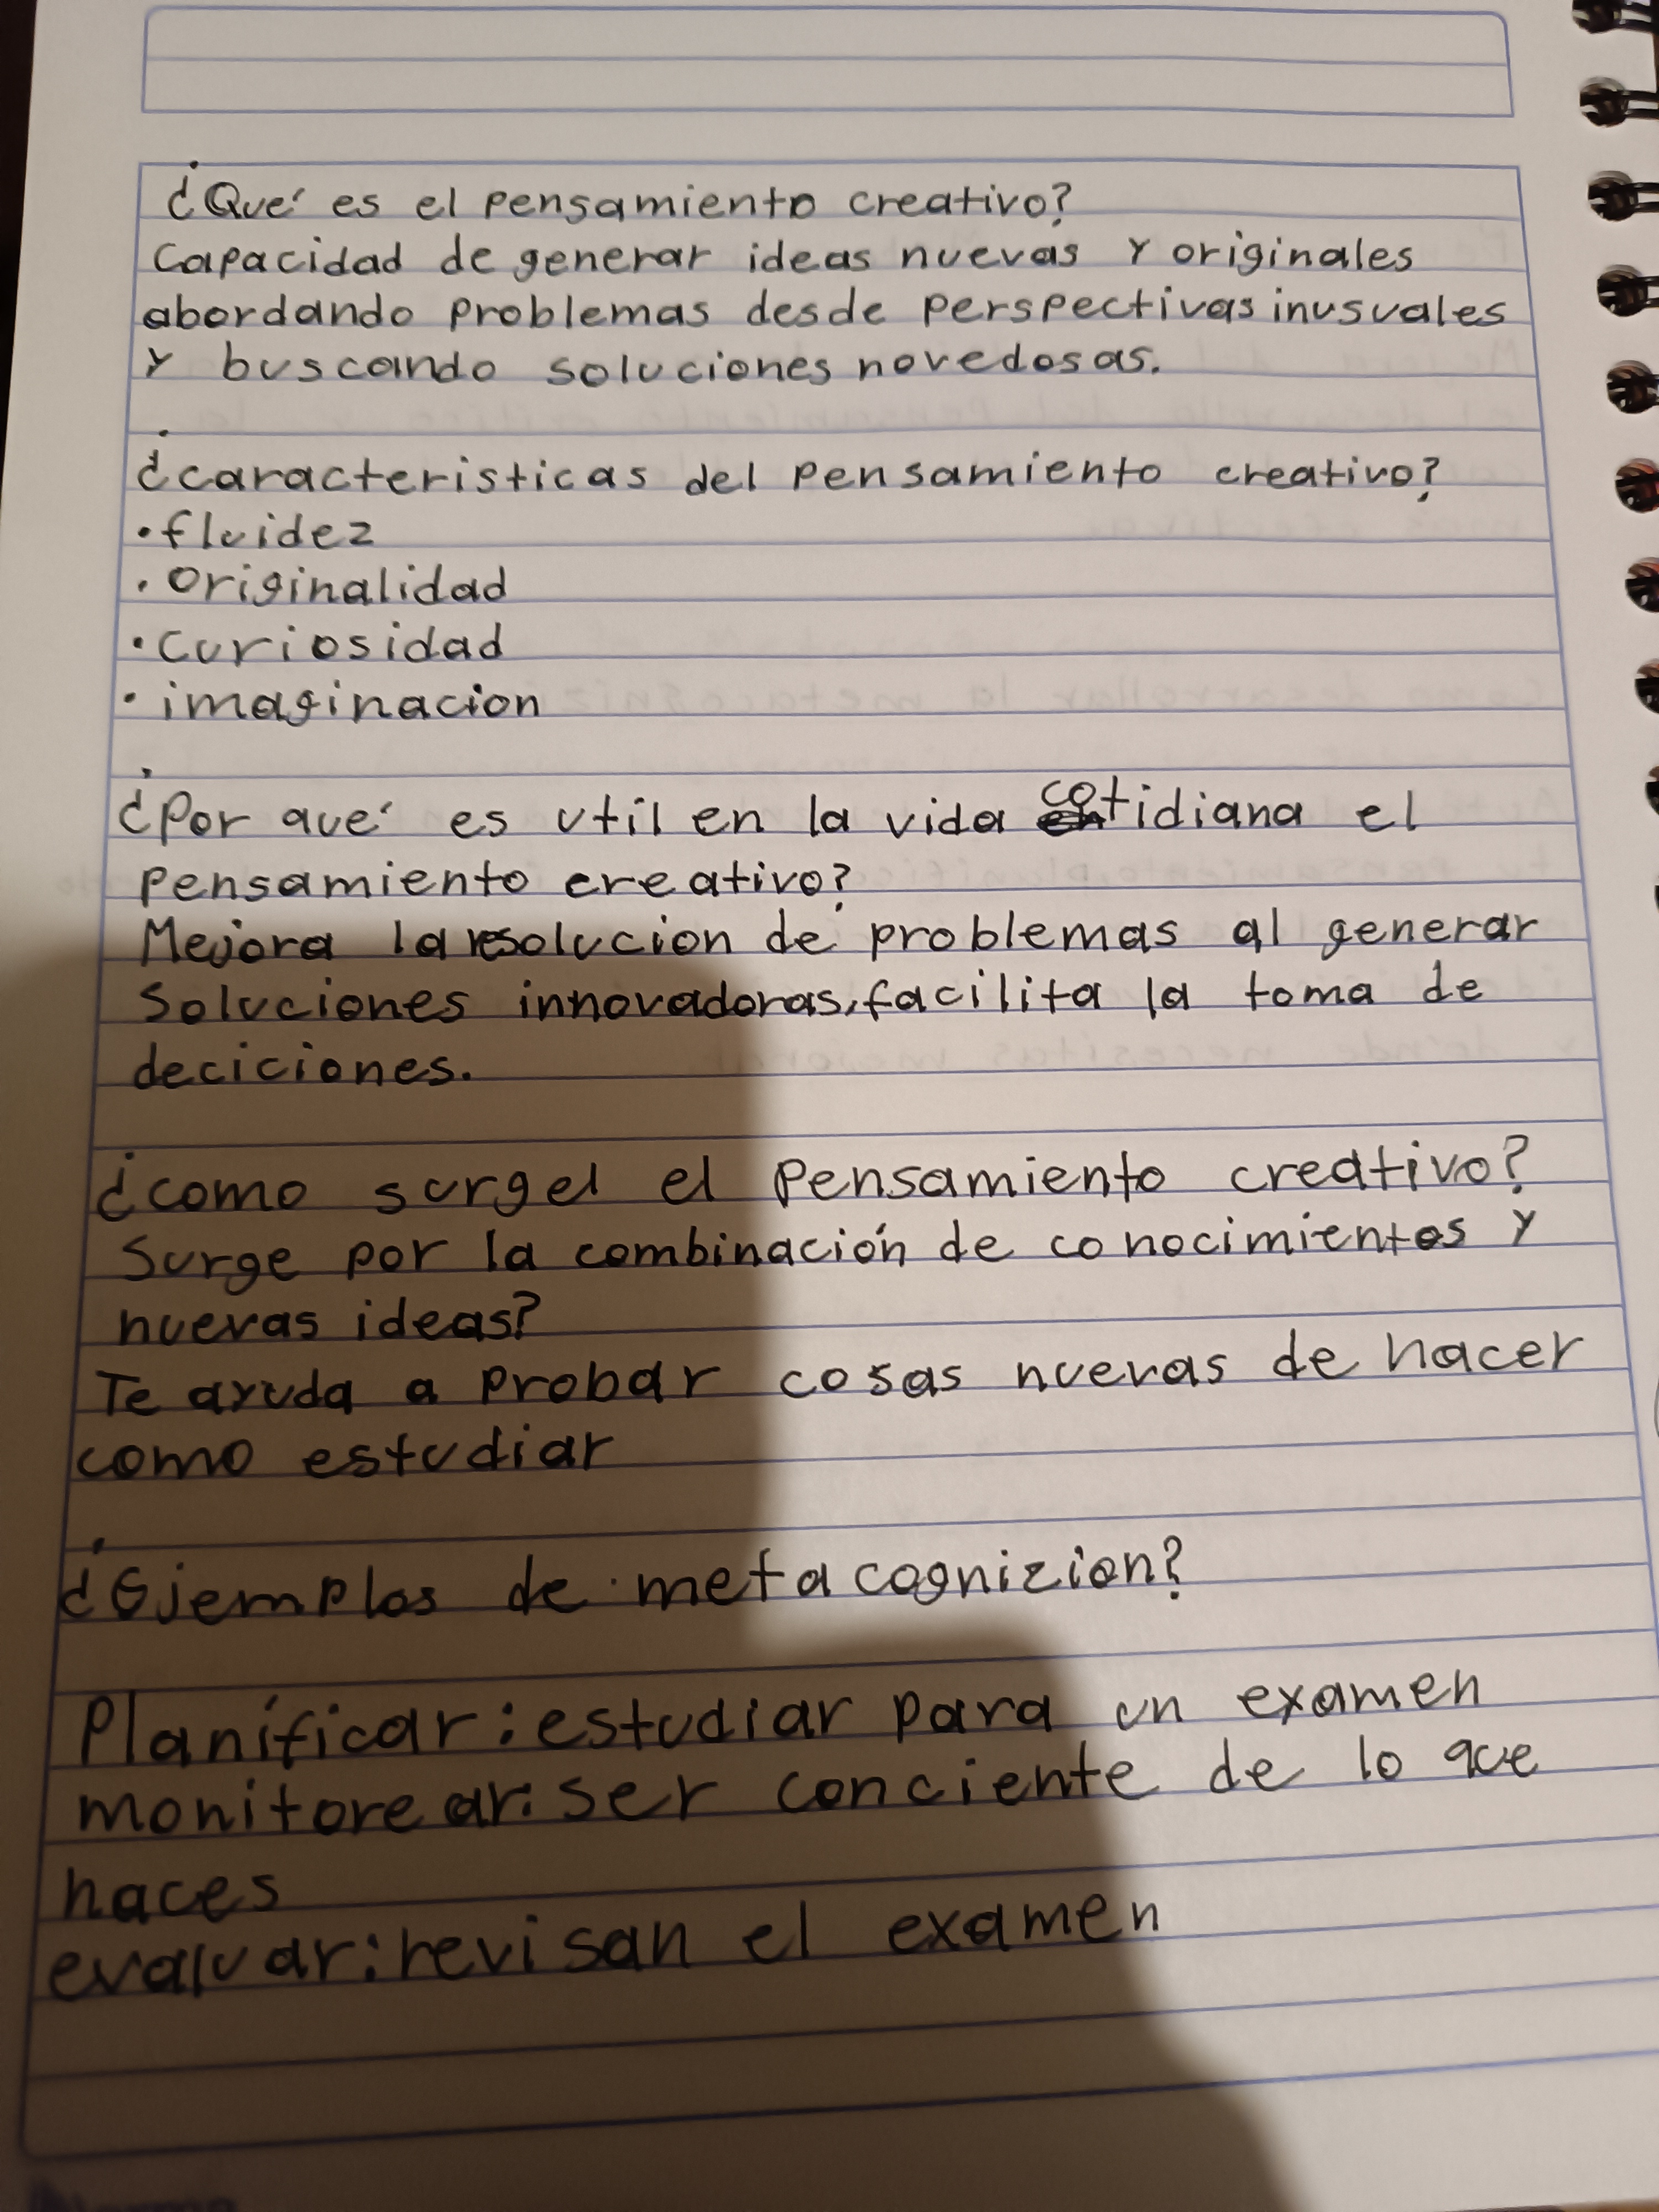 ¿Qué es el pensamiento creativo?
Capacidad de generar ideas nuevas y originales
abordando problemas desde perspectivas inusuales
y buscando soluciones novedosas.
¿caracteristicas del pensamiento creativo?
• fluidez
• originalidad
• curiosidad
• imaginacion
¿Por qué es util en la vida cotidiana el
pensamiento creativo?
Mejora la resolucion de problemas al generar
soluciones innovadoras, facilita la toma de
deciciones.
¿como surgel el pensamiento creativo?
Surge por la combinación de conocimientos y
nuevas ideas?
Te ayuda a probar cosas nuevas de hacer
como estudiar
¿Ejemplos de metacognizion?
Planificar: estudiar para un examen
monitorear: ser conciente de lo que
haces
evaluar: revisan el examen